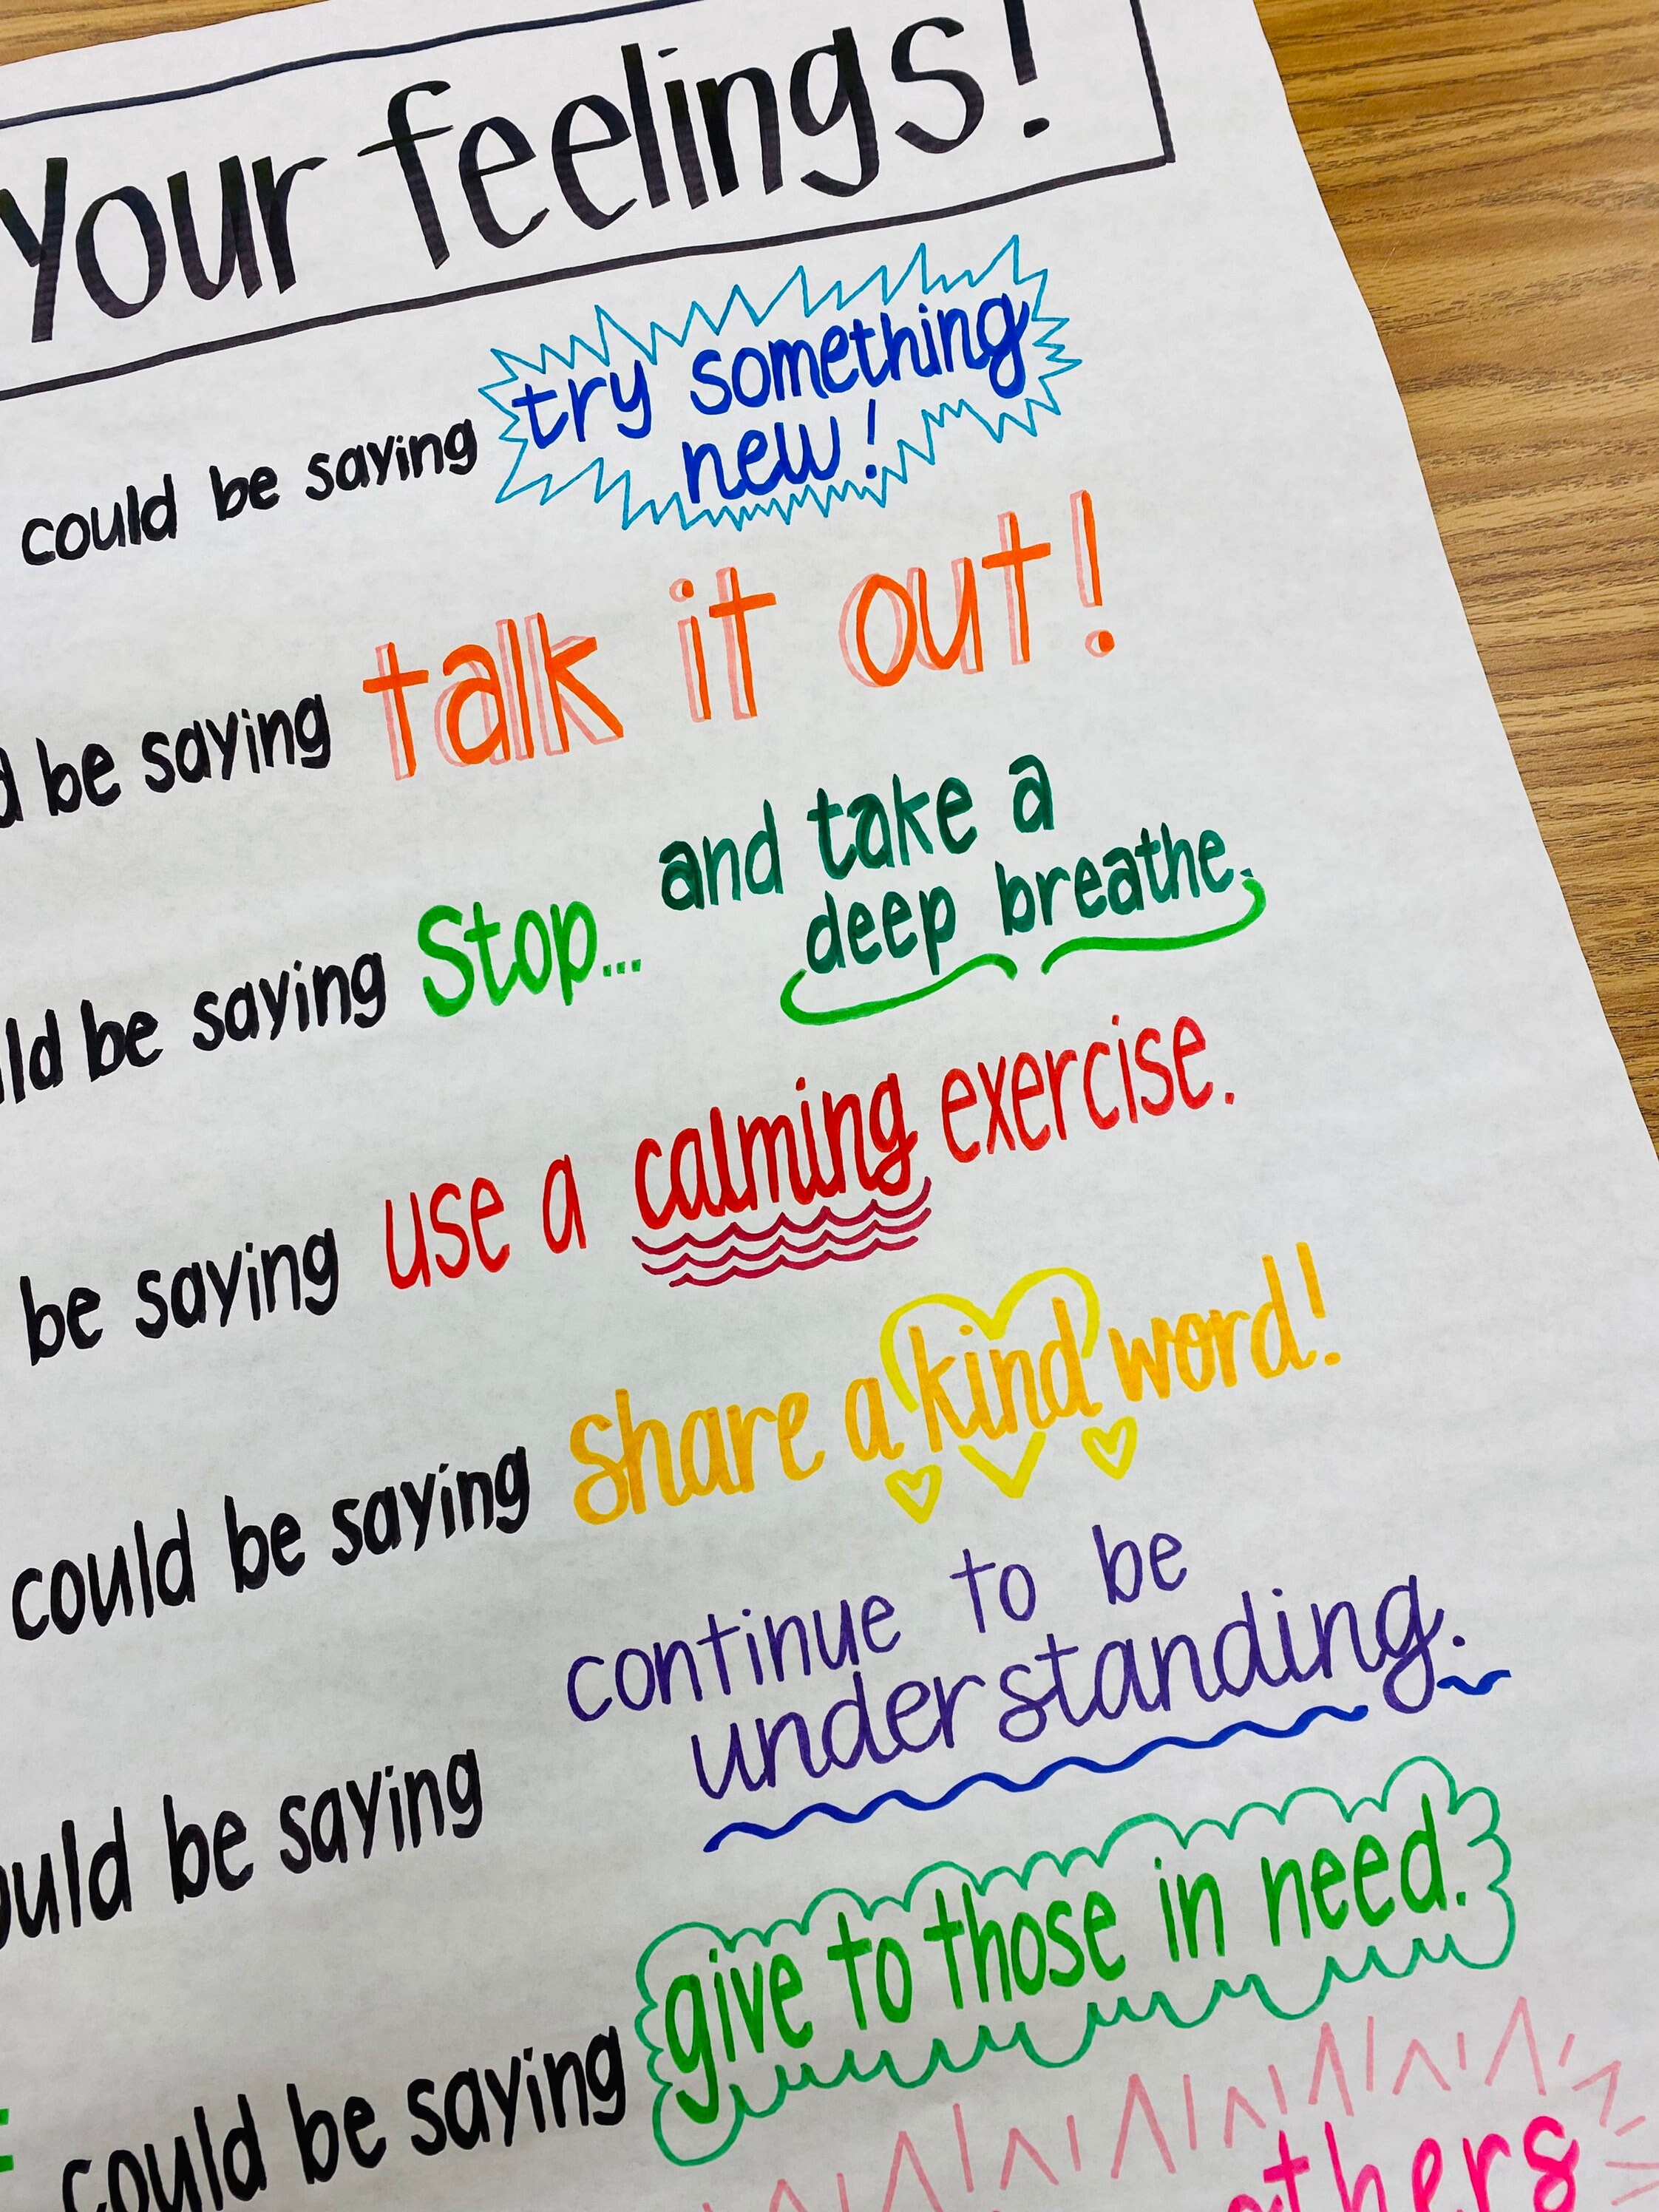 Your feelings!
could be saying try something
new!
be saying talk it out!
and take a
be saying Stop... deep breathe.
be saying use a calming exercise.
could be saying share a kind word!
continue to be
be saying understanding.
could be saying give to those in need.